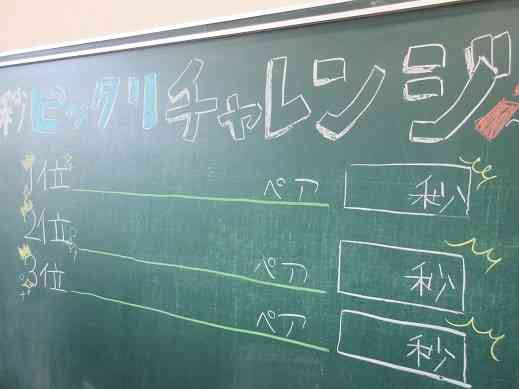 秒ピッタリチャレンジ
1位 ペア 秒
2位 ペア 秒
3位 ペア 秒